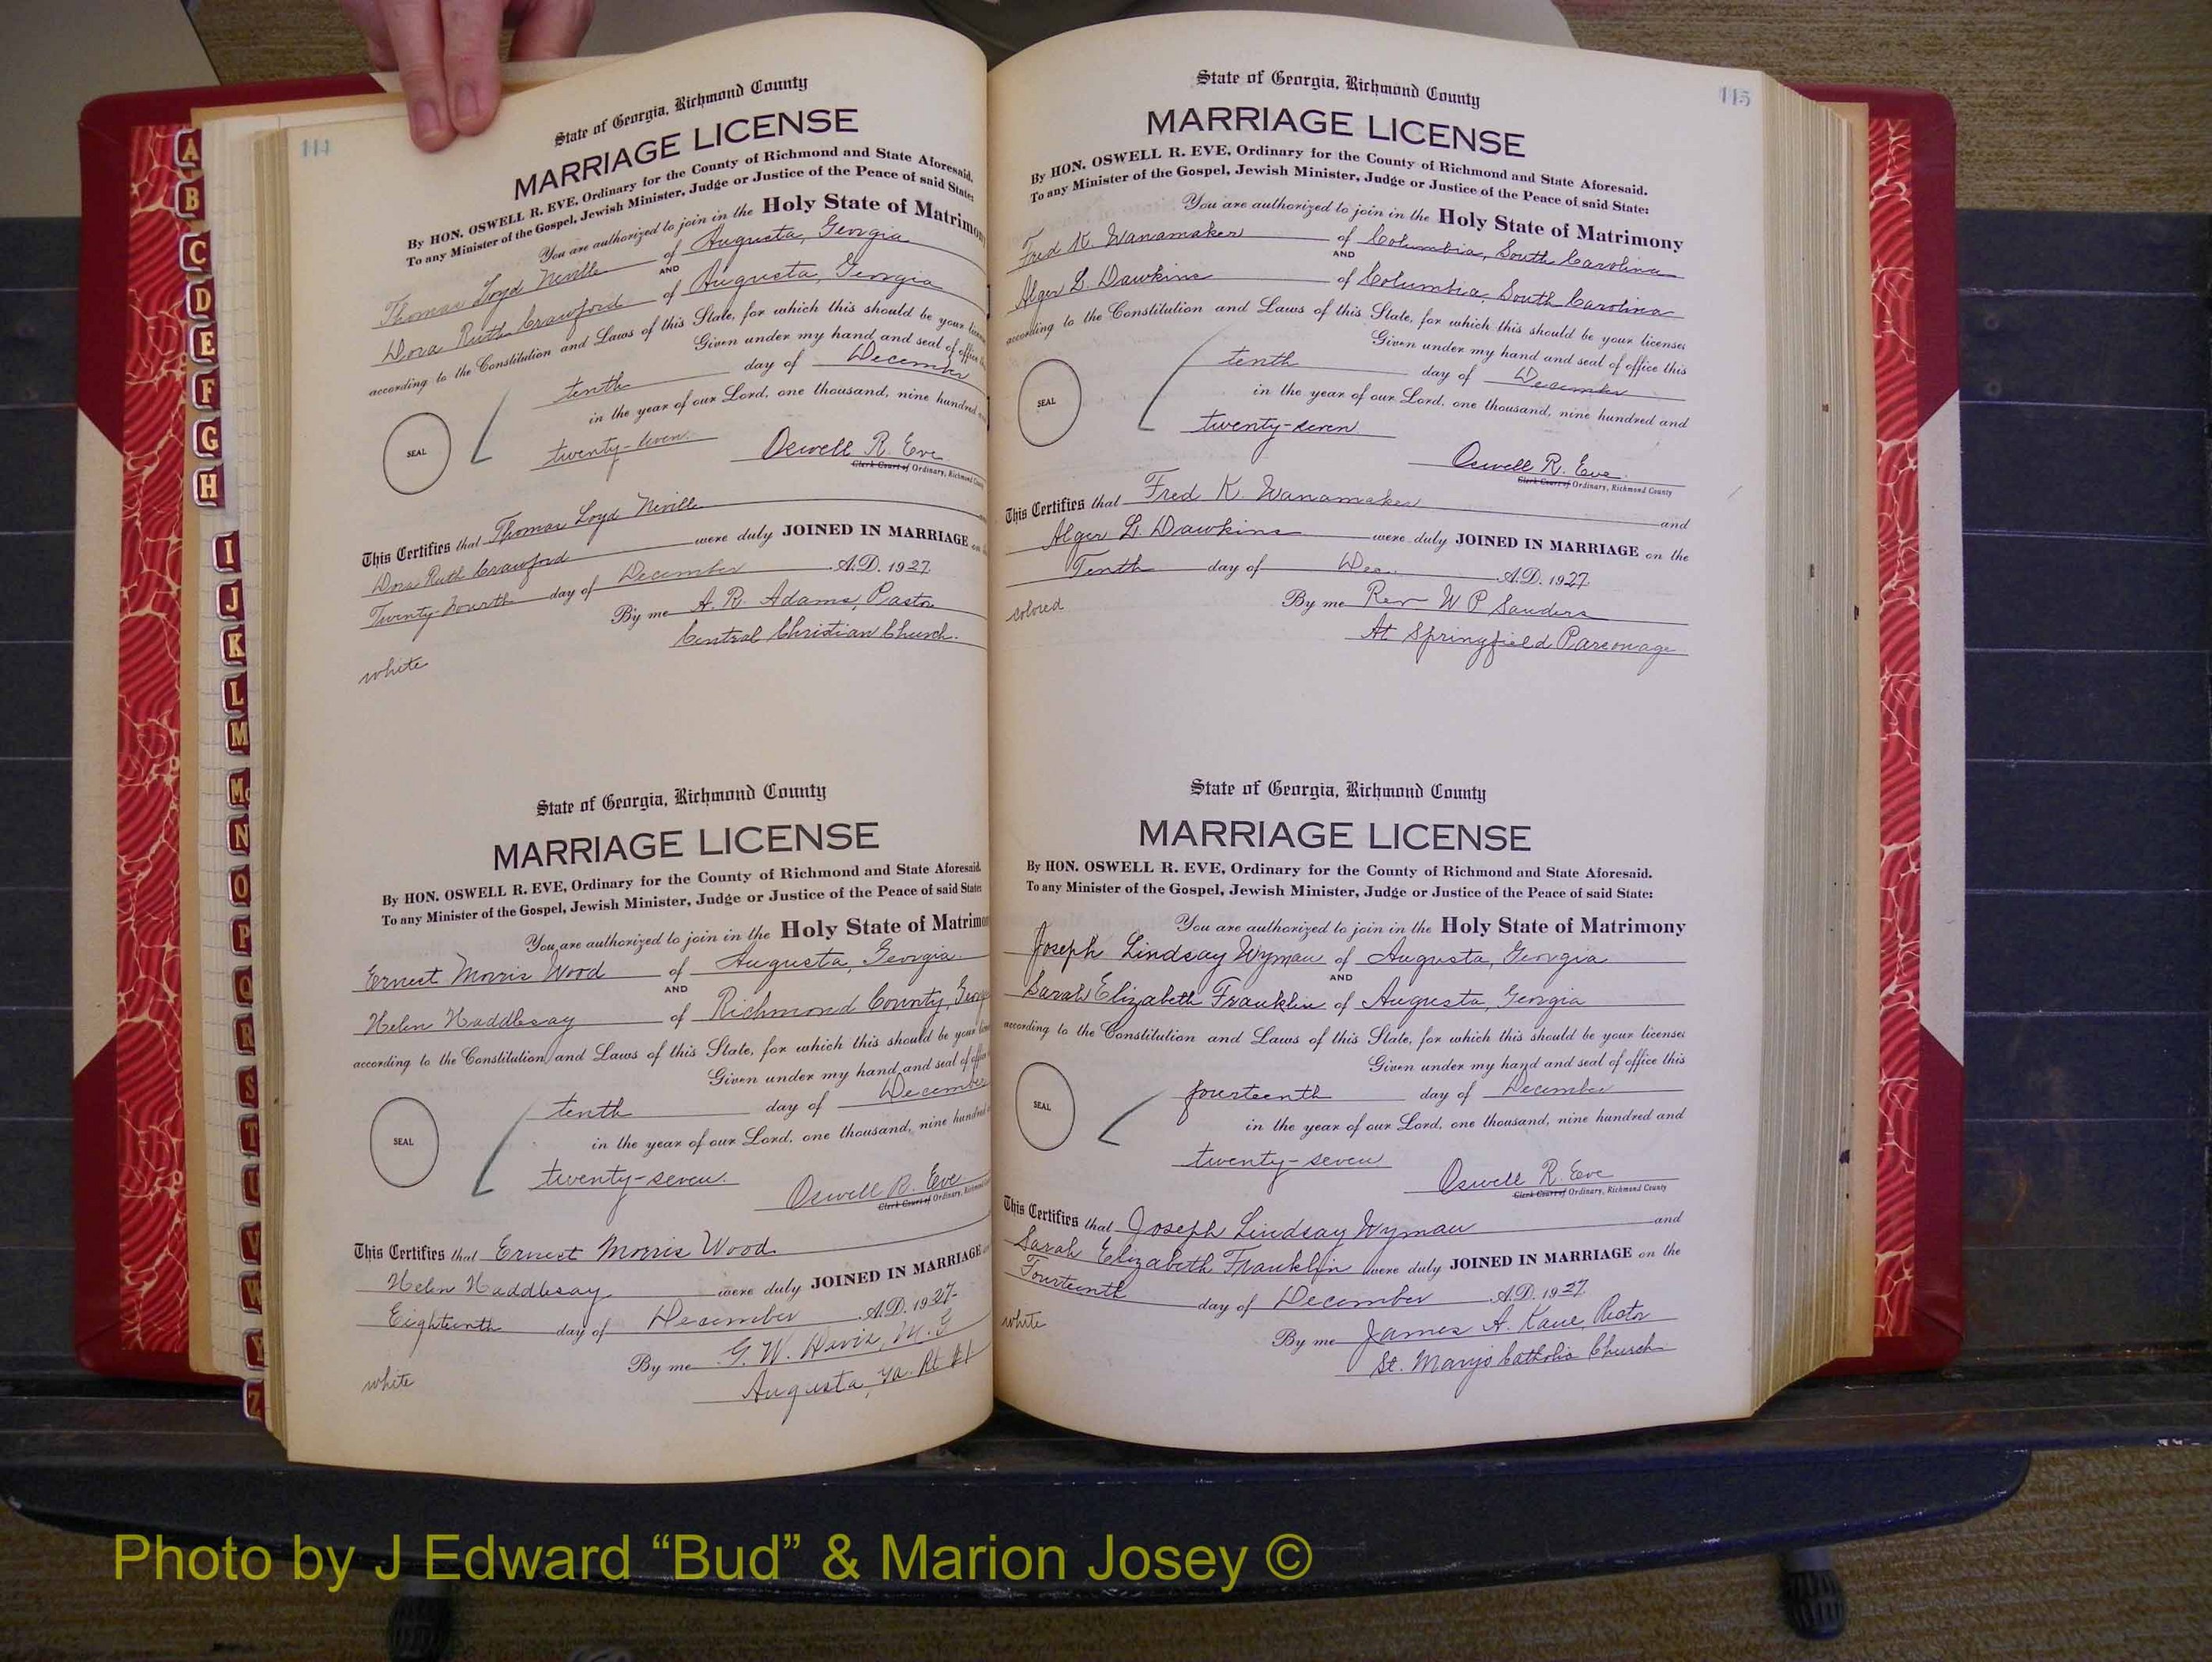 114
State of Georgia, Richmond County
MARRIAGE LICENSE
By HON. OSWELL R. EVE, Ordinary for the County of Richmond and State Aforesaid.
To any Minister of the Gospel, Jewish Minister, Judge or Justice of the Peace of said State:
You are authorized to join in the Holy State of Matrimony
Thomas Loyd Neville of Augusta, Georgia
AND
Dora Ruth Crawford of Augusta, Georgia
according to the Constitution and Laws of this State, for which this should be your
Given under my hand and seal of office
tenth day of December
in the year of our Lord, one thousand, nine hundred
SEAL
twenty-seven. Oswell R. Eve
Clerk Court of Ordinary, Richmond County
This Certifies that Thomas Loyd Neville
Dora Ruth Crawford were duly JOINED IN MARRIAGE on
Twenty-Fourth day of December A.D. 1927.
By me A. R. Adams, Pastor
Central Christian Church.
white
State of Georgia, Richmond County
MARRIAGE LICENSE
By HON. OSWELL R. EVE, Ordinary for the County of Richmond and State Aforesaid.
To any Minister of the Gospel, Jewish Minister, Judge or Justice of the Peace of said State:
You are authorized to join in the Holy State of Matrimon
Ernest Morris Wood of Augusta, Georgia
AND
Helen Haddlesay of Richmond County, Geor
according to the Constitution and Laws of this State, for which this should be your
Given under my hand and seal of office
tenth day of December
in the year of our Lord, one thousand, nine hundred
SEAL
twenty-seven. Oswell R. Eve
Clerk Court of Ordinary, Richmond
This Certifies that Ernest Morris Wood
Helen Haddlesay were duly JOINED IN MARRIAGE
Eighteenth day of December A.D. 1927.
By me G. W. Davis, M. G
Augusta, Ga. Rt #1
white
115
State of Georgia, Richmond County
MARRIAGE LICENSE
By HON. OSWELL R. EVE, Ordinary for the County of Richmond and State Aforesaid.
To any Minister of the Gospel, Jewish Minister, Judge or Justice of the Peace of said State:
You are authorized to join in the Holy State of Matrimony
Fred K. Wanamaker of Columbia, South Carolina
AND
Alger L. Dawkins of Columbia, South Carolina
according to the Constitution and Laws of this State, for which this should be your licenses
Given under my hand and seal of office this
tenth day of December
SEAL
in the year of our Lord, one thousand, nine hundred and
twenty-seven
Oswell R. Eve.
Clerk Court of Ordinary, Richmond County
This Certifies that Fred K. Wanamaker and
Alger L. Dawkins were duly JOINED IN MARRIAGE on the
Tenth day of Dec. A.D. 1927.
colored
By me Rev W P Sanders
At Springfield Parsonage
State of Georgia, Richmond County
MARRIAGE LICENSE
By HON. OSWELL R. EVE, Ordinary for the County of Richmond and State Aforesaid.
To any Minister of the Gospel, Jewish Minister, Judge or Justice of the Peace of said State:
You are authorized to join in the Holy State of Matrimony
Joseph Lindsay Wyman of Augusta, Georgia
AND
Sarah Elizabeth Franklin of Augusta, Georgia
according to the Constitution and Laws of this State, for which this should be your licenses
Given under my hand and seal of office this
fourteenth day of December
SEAL
in the year of our Lord, one thousand, nine hundred and
twenty-seven
Oswell R. Eve
Clerk Court of Ordinary, Richmond County
This Certifies that Joseph Lindsay Wyman and
Sarah Elizabeth Franklin were duly JOINED IN MARRIAGE on the
Fourteenth day of December A.D. 1927.
white
By me James A. Kane, Rector
St. Marys Catholic Church
A
B
C
D
E
F
G
H
I
J
K
L
M
Mc
N
O
P
Q
R
S
T
U
V
W
Y
Z
Photo by J Edward “Bud” & Marion Josey ©